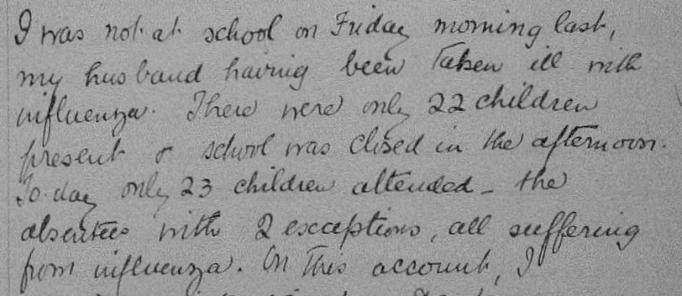 I was not at school on Friday morning last,
my husband having been taken ill with
influenza. There were only 22 children
present & school was closed in the afternoon.
To-day only 23 children attended - the
absentees with 2 exceptions, all suffering
from influenza. On this account, I